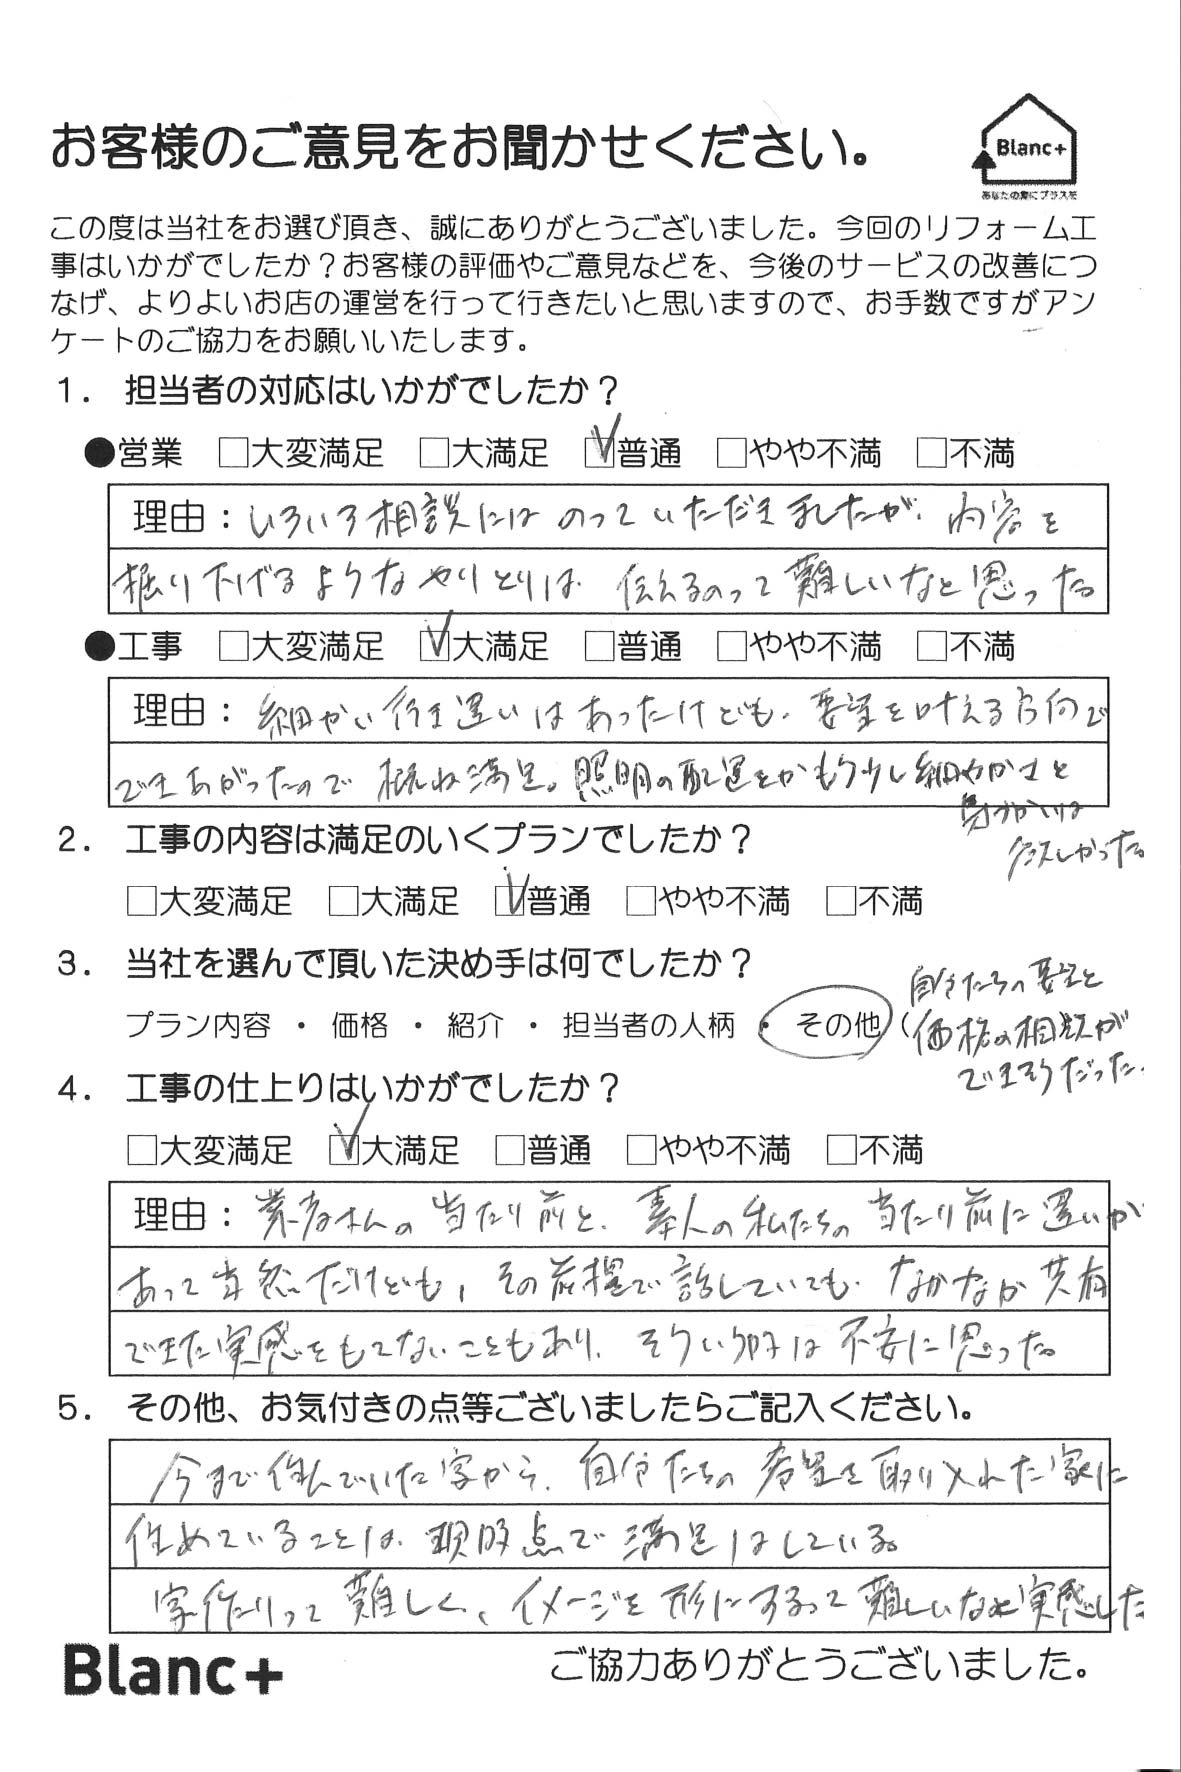 お客様のご意見をお聞かせください。
Blanc+
あなたの家にプラスを
この度は当社をお選び頂き、誠にありがとうございました。今回のリフォーム工
事はいかがでしたか？お客様の評価やご意見などを、今後のサービスの改善につ
なげ、よりよいお店の運営を行って行きたいと思いますので、お手数ですがアン
ケートのご協力をお願いいたします。
1． 担当者の対応はいかがでしたか？
●営業 □大変満足 □大満足 ☑普通 □やや不満 □不満
理由：いろいろ相談にはのっていただきましたが、内容を
掘り下げるようなやりとりは、伝えるのって難しいなと思った。
●工事 □大変満足 ☑大満足 □普通 □やや不満 □不満
理由：細かい行き違いはあったけども、要望を叶える方向で
できあがったので概ね満足。照明の配置とかもう少し細やかさと
気づかいは
欲しかった。
2． 工事の内容は満足のいくプランでしたか？
□大変満足 □大満足 ☑普通 □やや不満 □不満
3． 当社を選んで頂いた決め手は何でしたか？
プラン内容 ・ 価格 ・ 紹介 ・ 担当者の人柄 ・ その他（自分たちの要望と
価格の相談が
できそうだった。
4． 工事の仕上りはいかがでしたか？
□大変満足 ☑大満足 □普通 □やや不満 □不満
理由：業者さんの当たり前と、素人の私たちの当たり前に違いが
あって当然だけども、その前提で話していても、なかなか共有
できた実感をもてないこともあり、そういう時は不安に思った。
5． その他、お気付きの点等ございましたらご記入ください。
今まで住んでいた家から、自分たちの希望を取り入れた家に
住めていることは、現時点で満足はしている。
家作りって難しく、イメージを形にするって難しいなと実感した
Blanc+
ご協力ありがとうございました。